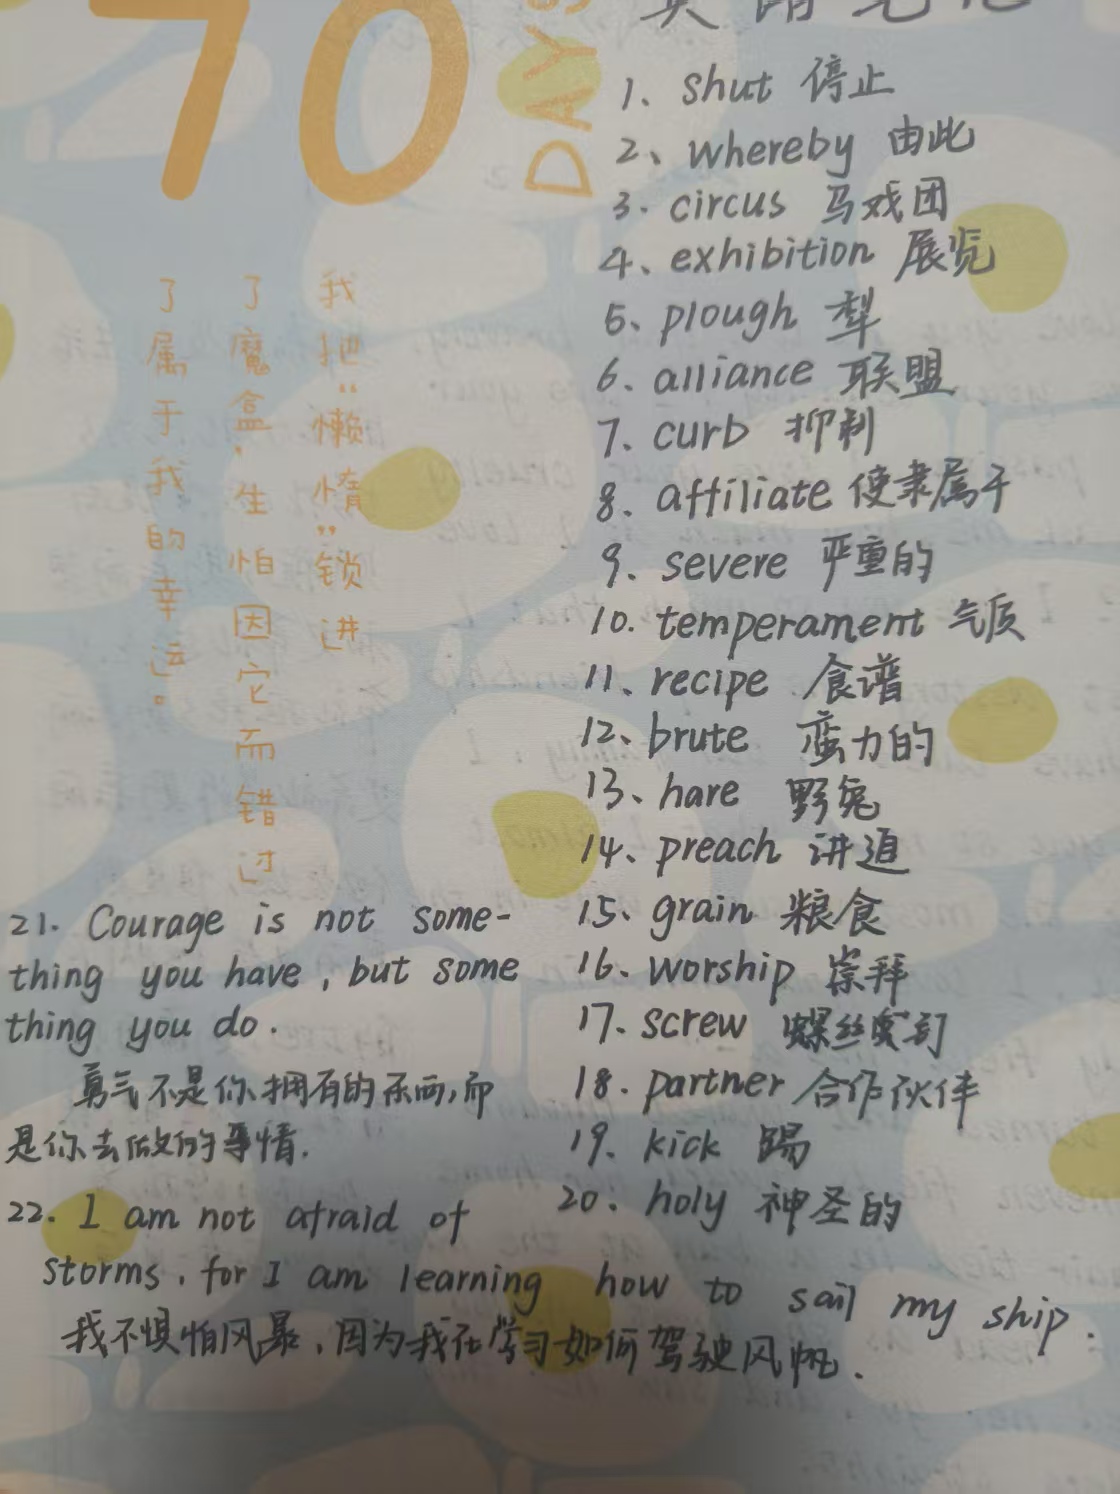 70
DAYS
1、shut 停止
2、whereby 由此
3. circus 马戏团
4、exhibition 展览
5、plough 犁
6、alliance 联盟
7. curb 抑制
8、affiliate 使隶属于
9、severe 严重的
10. temperament 气质
11、recipe 食谱
12、brute 蛮力的
13、hare 野兔
14、preach 讲道
15、grain 粮食
16、worship 崇拜
17. screw 螺丝钉
18. partner 合作伙伴
19. kick 踢
20. holy 神圣的
我把“懒惰”锁进
了魔盒，生怕因它而错过
了属于我的幸运。
21. Courage is not some-
thing you have, but some
thing you do.
勇气不是你拥有的东西,而
是你去做的事情.
22. I am not afraid of
storms, for I am learning how to sail my ship.
我不惧怕风暴,因为我在学习如何驾驶风帆.